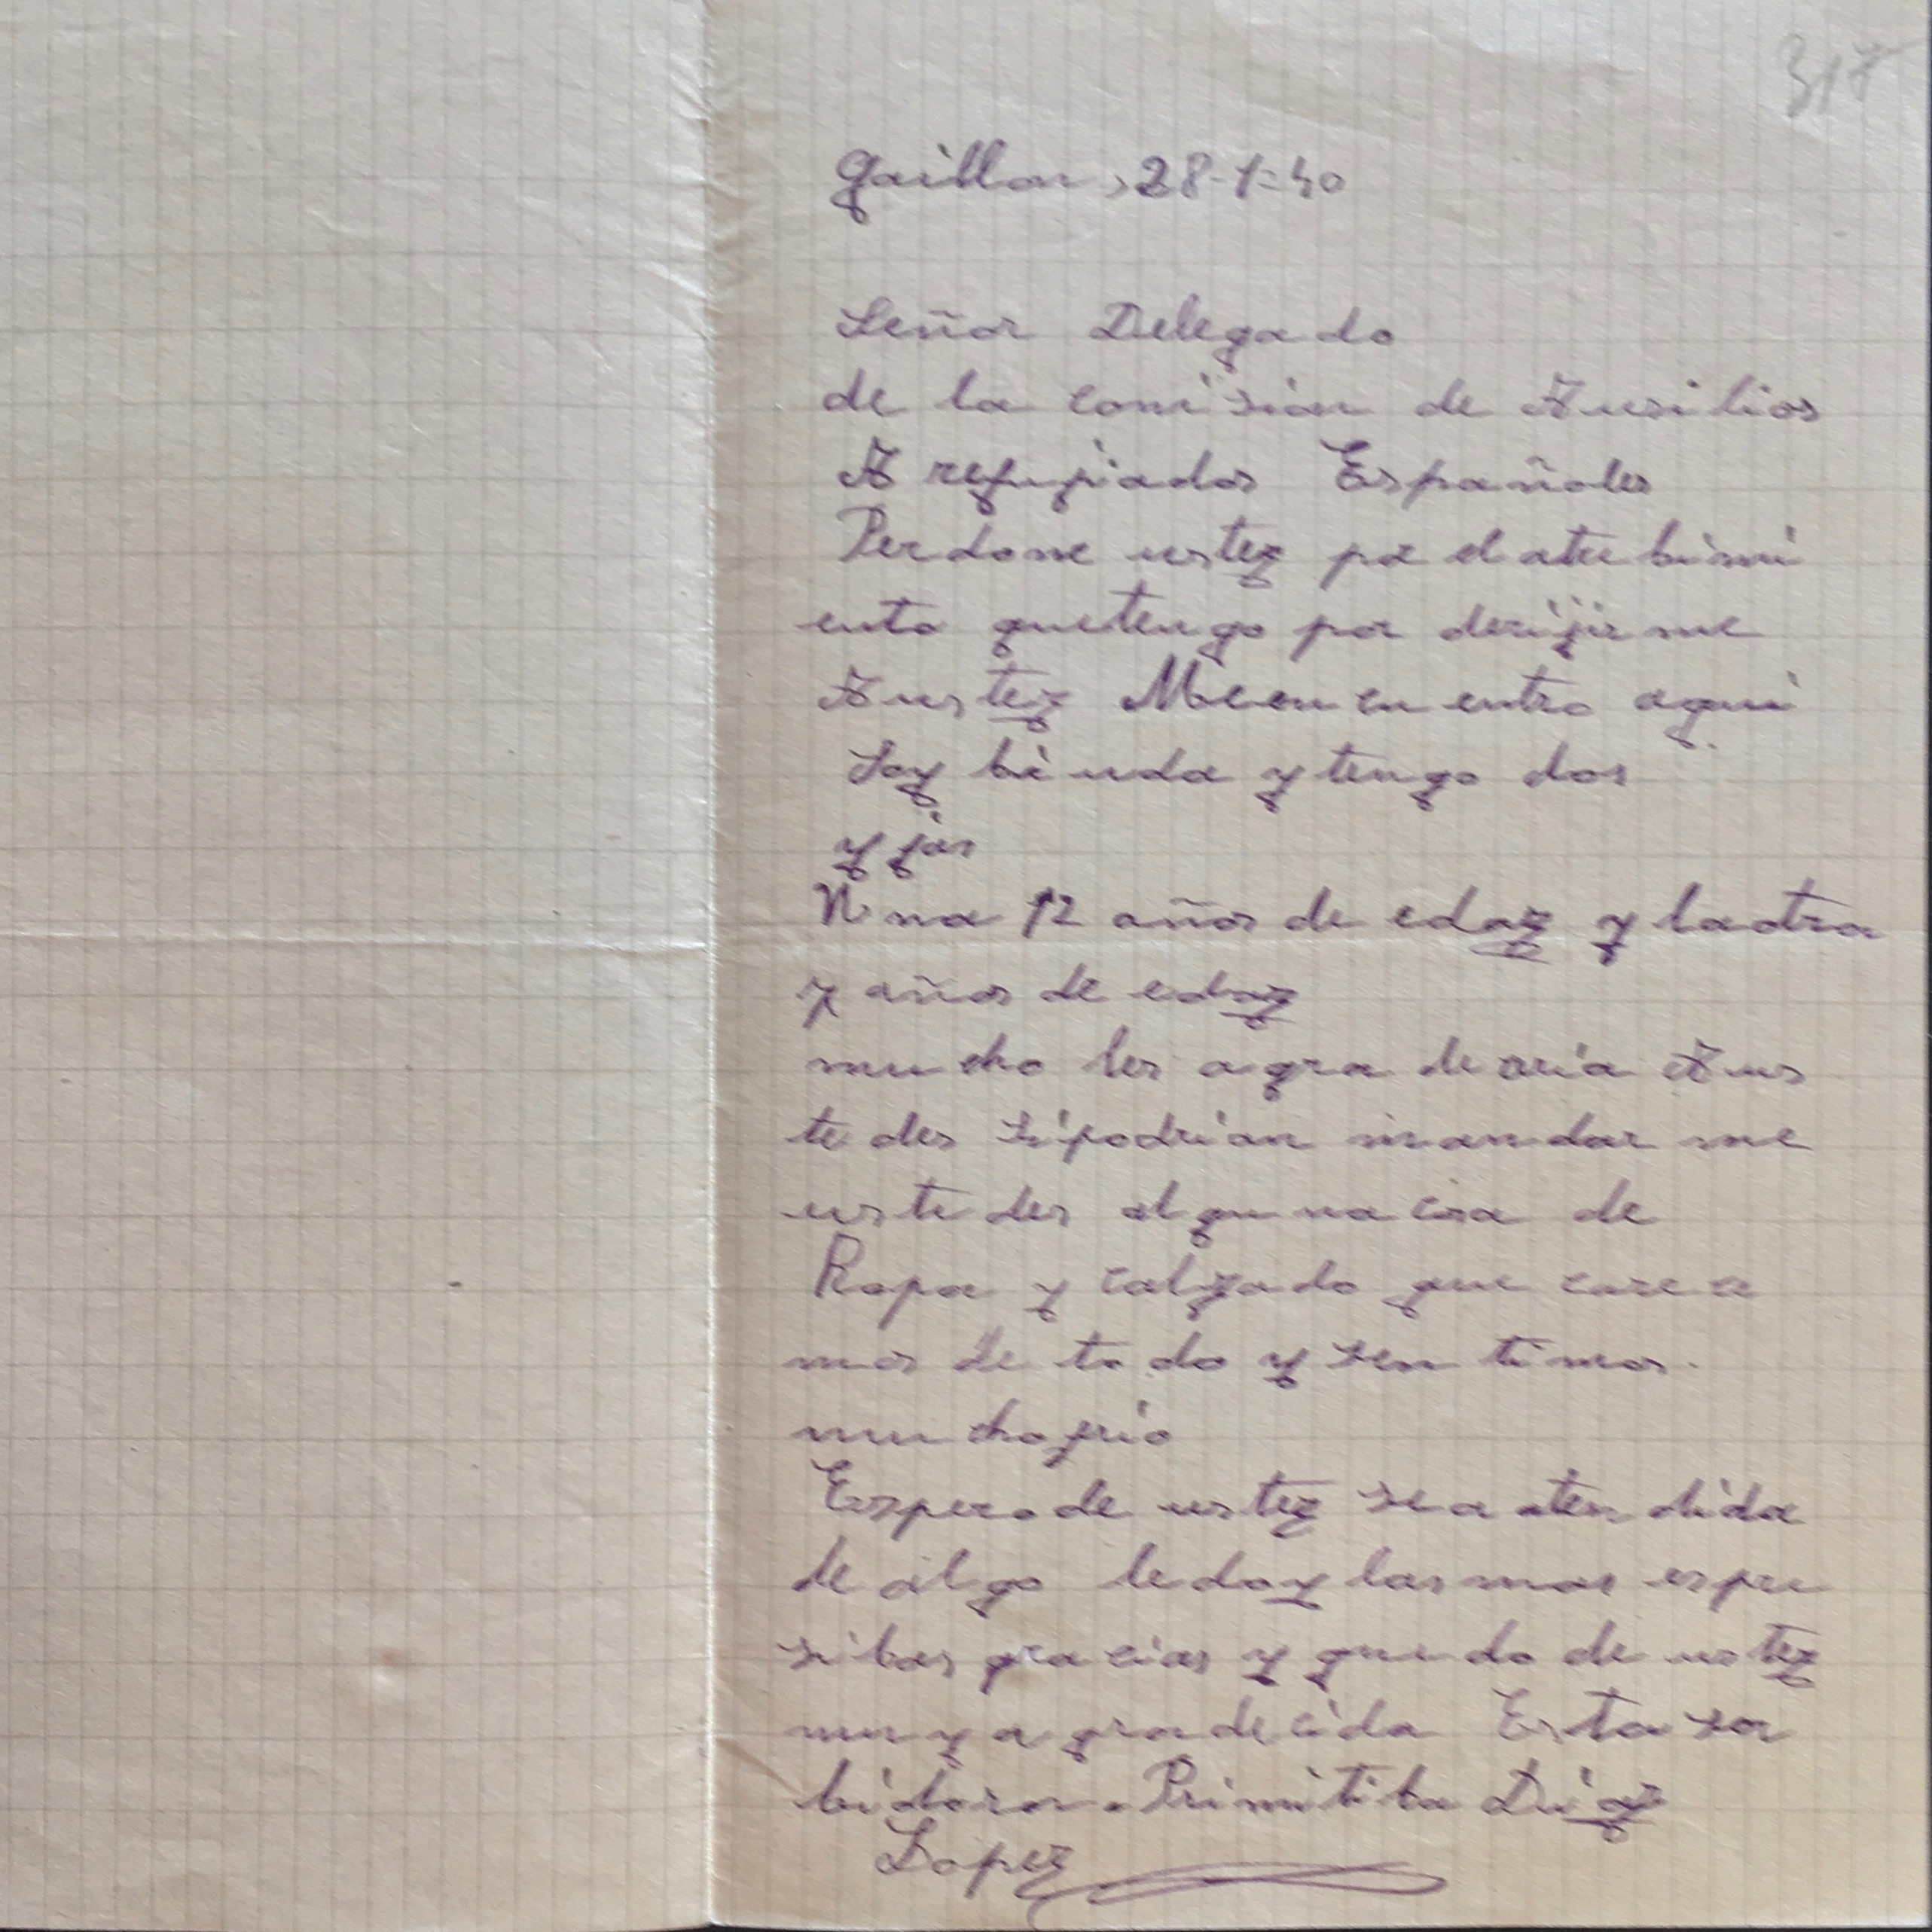 317
Gaillon, 28-1-40
Señor Delegado
de la comision de Ausilios
A refujiados Españoles
Perdone ustez por el atrebimi
ento quetengo por derijirme
Austez Meencuentro aqui
Soy biuda y tengo dos
yjas
Una 12 años de edaz y laotra
7 años de edaz
mucho les agradeceria Aus
tedes sipodrian mandarme
ustedes algunacosa de
Ropa y calzado que carece
mos de todo y sentimos.
muchofrio
Esperode ustez sea atendida
de algo ledoy lasmas espre
sibas gracias y quedo de ustez
muy agradecida Esta ser
bidora. Primitiba Diaz
Lopez